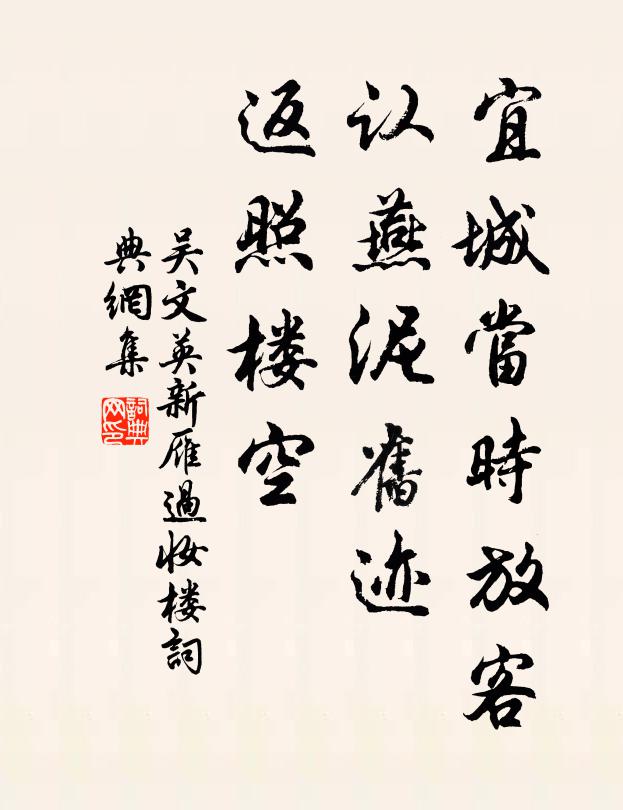 宜城當時放客
认燕泥舊迹
返照楼空
吴文英新雁過妝楼詞
典網集
詞典网印